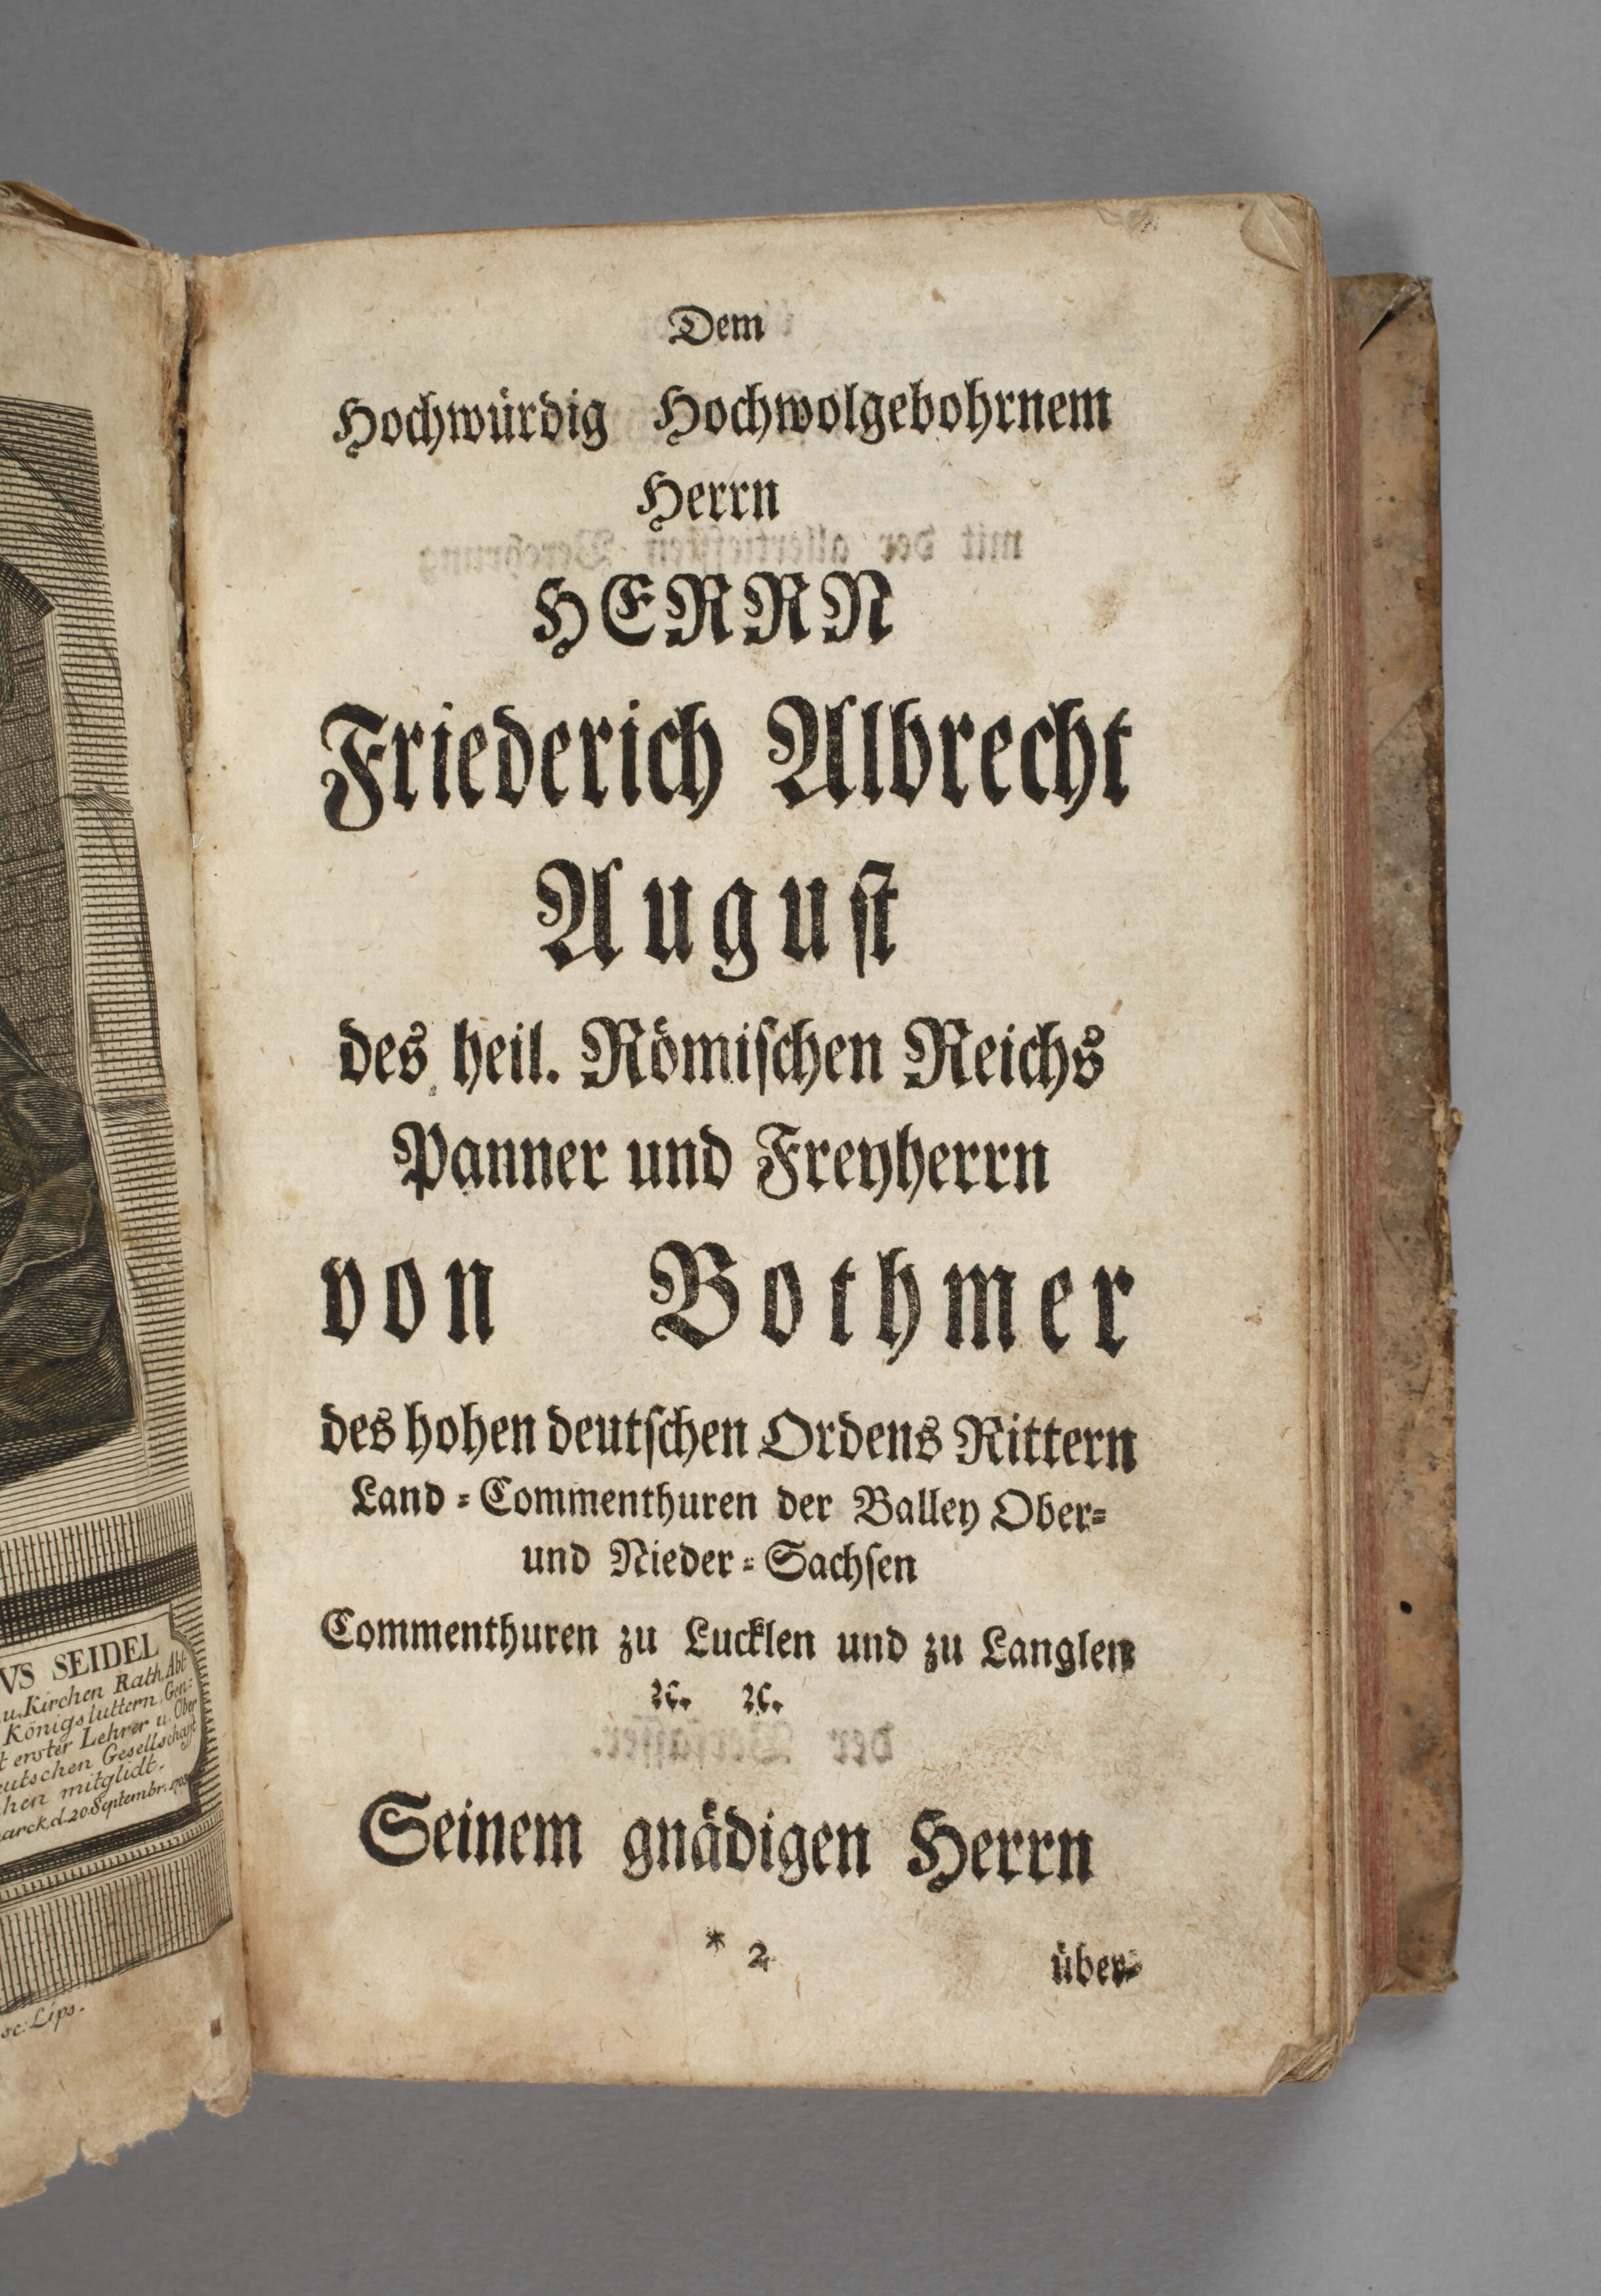 VS SEIDEL
u. Kirchen Rath, Abt
Königsluttern, Gen:
erster Lehrer u. Ober
eutschen Gesellschaft
hen mitglidt.
arck, d. 20. Septembr. 1703
sc: Lips.
Dem
Hochwürdig Hochwolgebohrnem
Herrn
mit der allertiefſten Verehrung
HERRN
Friederich Albrecht
Auguſt
des heil. Römiſchen Reichs
Panner und Freyherrn
von Bothmer
des hohen deutſchen Ordens Rittern
Land-Commenthuren der Balley Ober-
und Nieder-Sachſen
Commenthuren zu Lucklen und zu Langlen
ꝛc. ꝛc.
der Verfaſſer.
Seinem gnädigen Herrn
* 2 über-